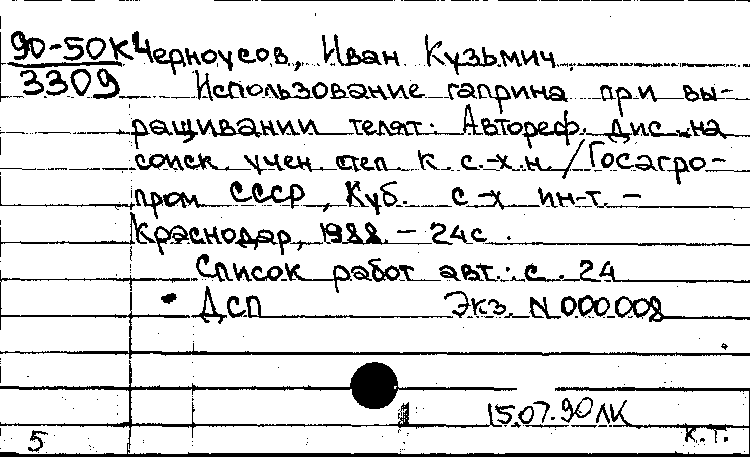 90-50К Черноусов, Иван Кузьмич.
3309 Использование гаприна при вы-
ращивании телят: Автореф. дис. на
соиск. учен. степ. к. с.-х. н. / Госагро-
пром СССР, Куб. с-х ин-т. -
Краснодар, 1988. - 24 с.
Список работ авт.: с. 24
ДСП Экз. N 000008
15.07.90 ЛК
5 К.Т.